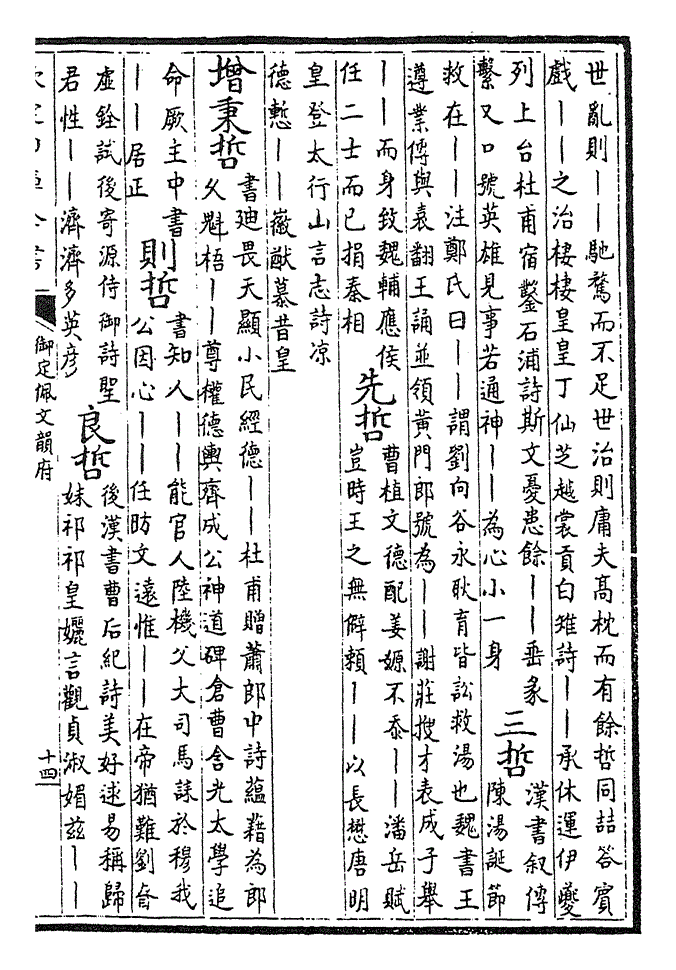 世亂則丨丨馳騖而不足世治則庸夫高枕而有餘哲同喆答賓
戲丨丨之治棲棲皇皇丁仙芝越裳貢白雉詩丨丨承休運伊夔
列上台杜甫宿鑿石浦詩斯文憂患餘丨丨垂彖
繫又口號英雄見事若通神丨丨為心小一身
三哲
漢書叙傳
陳湯誕節
救在丨丨注鄭氏曰丨丨謂劉向谷永耿育皆訟救湯也魏書王
遵業傳與袁翻王誦並領黃門郎號為丨丨謝莊搜才表成子舉
丨丨而身致魏輔應侯
任二士而已捐秦相
先哲
曹植文德配姜嫄不忝丨丨潘岳賦
豈時王之無僻賴丨丨以長懋唐明
皇登太行山言志詩凉
德慙丨丨徽猷慕昔皇
增秉哲
書廸畏天顯小民經德丨丨杜甫贈蕭郎中詩藴藉為郎
久魁梧丨丨尊權德輿齊成公神道碑倉曹含光太學追
命厥主中書
丨丨居正
則哲
書知人丨丨能官人陸機父大司馬誄於穆我
公因心丨丨任昉文遠惟丨丨在帝猶難劉昚
虛銓試後寄源侍御詩聖
君性丨丨濟濟多英彦
良哲
後漢書曹后紀詩美好逑易稱歸
妹祁祁皇孋言觀貞淑媚兹丨丨
欽定四庫全書
御定佩文韻府
十四